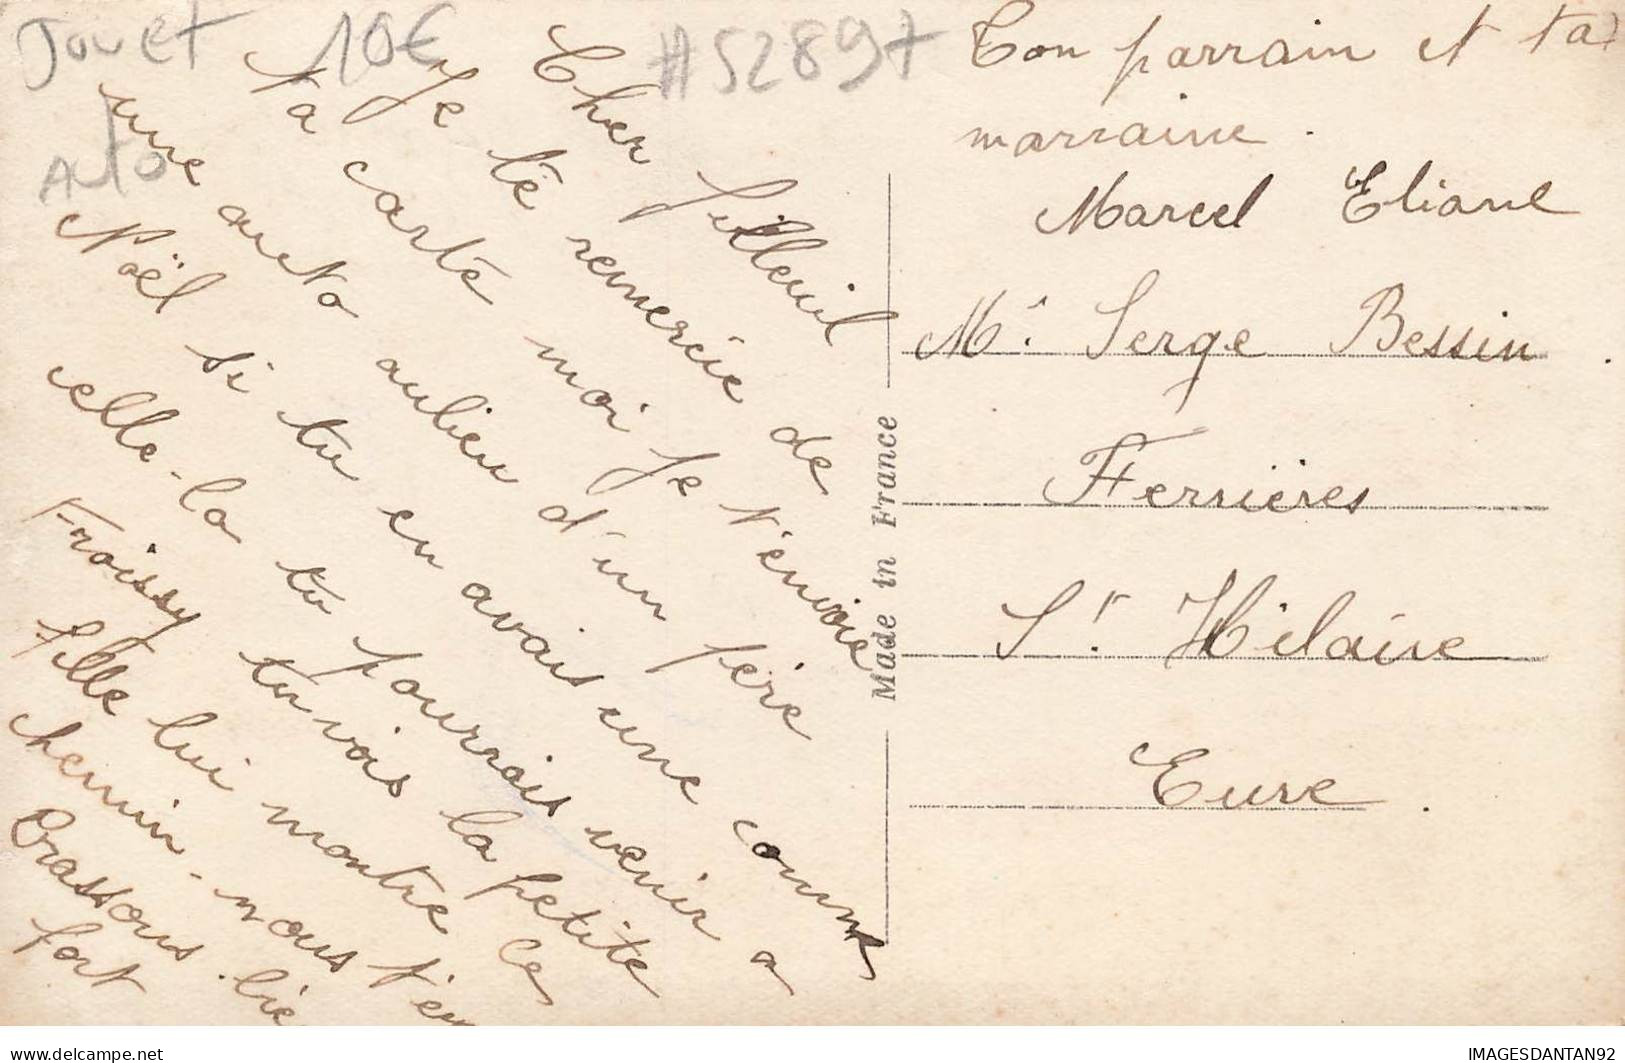 Jouet 10€ #52897
Auto
Cher filleuil
Je te remercie de
ta carte moi je t'envoie
une auto aulieu d'un père
Nöel si tu en avais une comme
celle-la tu pourrais venir a
Froissy tu vois la petite
fille lui montre le
chemin - nous t'em
brassons bie
fort
Ton parrain et ta
marraine.
Marcel Eliane
Mr. Serge Bessin.
Ferrières
St. Hilaire
Eure.
Made in France
https://www.delcampe.net
IMAGESDANTAN92